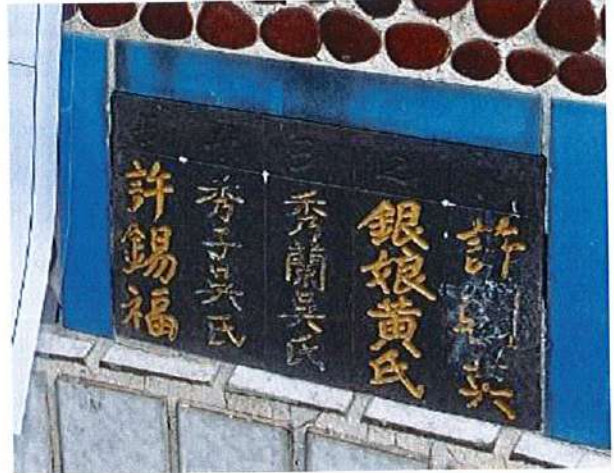 許 英
銀娘黄氏
秀蘭吳氏
秀子吳氏
許錫福